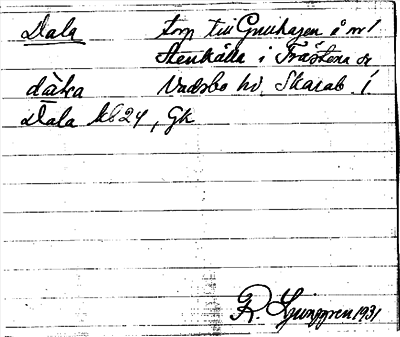 Dala torp till Gruvhagen å nr 1
Stenkälla i Trästena sn
dàla Vadsbo hd, Skarab. l.
Dala kb 24, Gk
R. Ljunggren 1931